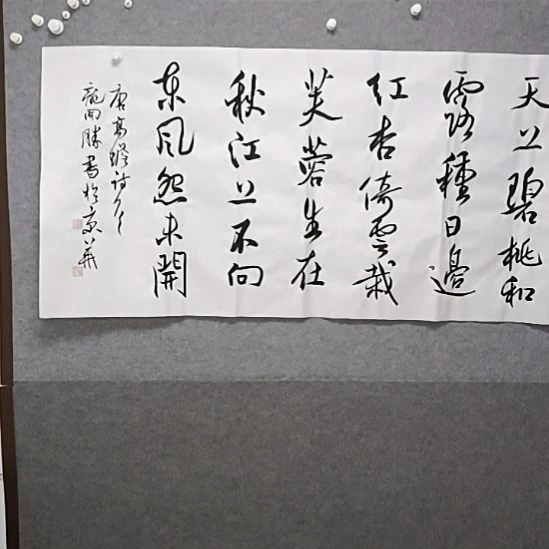 天上碧桃和
露種日邊
紅杏倚雲栽
芙蓉生在
秋江上不向
東風怨未開
唐高蟾詩
龍開勝書於京華